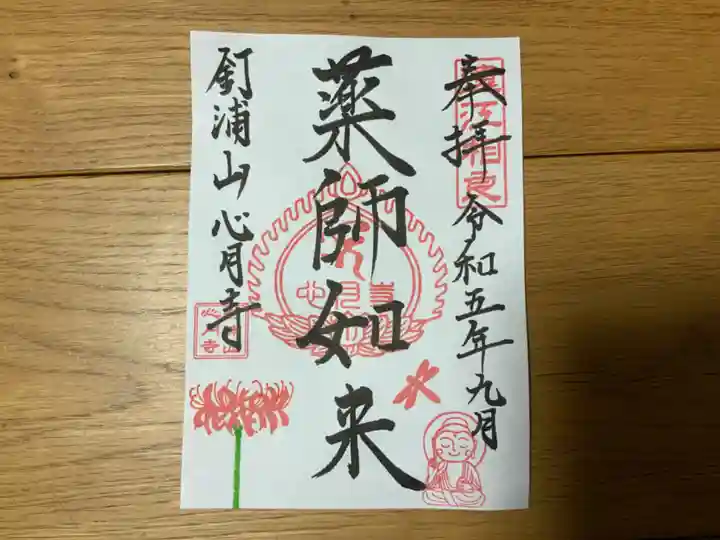 奉拝 令和五年九月
薬師如来
釘浦山心月寺
心月寺